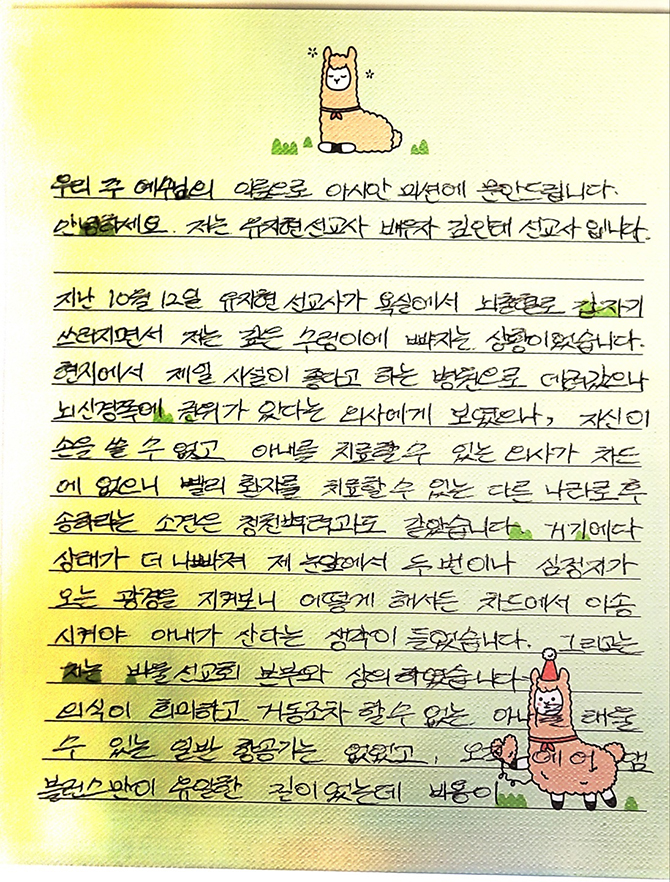 우리 주 예수님의 이름으로 아시안 미션에 문안드립니다.
안녕하세요. 저는 유지현선교사 배우자 김인태 선교사 입니다.
지난 10월 12일 유지현 선교사가 욕실에서 뇌출혈로 갑자기
쓰러지면서 저는 깊은 수렁이에 빠지는 상황이였습니다.
현지에서 제일 시설이 좋다고 하는 병원으로 데려갔으나
뇌신경쪽에 권위가 있다는 의사에게 보였으나, 자신이
손을 쓸 수 없고 아내를 치료할 수 있는 의사가 차드
에 없으니 빨리 환자를 치료할 수 있는 다른 나라로 후
송하라는 소견은 청천벽력과도 같았습니다. 거기에다
상태가 더 나빠져 제 눈앞에서 두 번이나 심정지가
오는 광경을 지켜보니 어떻게 해서든 차드에서 이송
시켜야 아내가 산다는 생각이 들었습니다. 그리고는
저는 바울선교회 본부와 상의하였습니다.
의식이 희미하고 거동조차 할 수 없는 아내를 태울
수 있는 일반 항공기는 없었고, 오직 에어 앰
뷸런스만이 유일한 길이 있는데 비용이